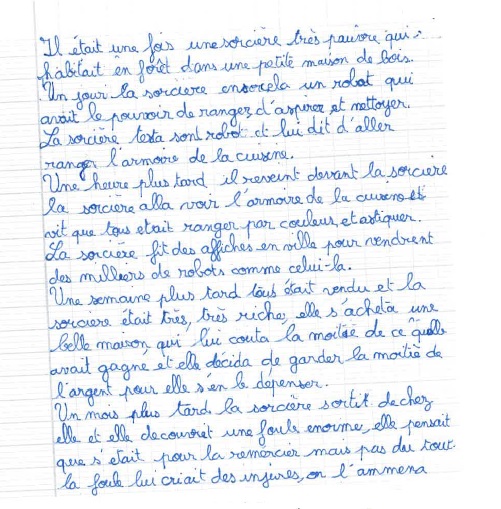 Il était une fois une sorcière très pauvre qui
habitait en forêt dans une petite maison de bois.
Un jour la sorciere ensorcela un robot qui
avait le pouvoir de ranger, d'aspirer et nettoyer.
La sorcière testa sont robot et lui dit d'aller
ranger l'armoire de la cuisine.
Une heure plus tard il reveint devant la sorciere
la sorcière alla voir l'armoire de la cuisine et
vit que tous etait ranger par couleus, et astiquer.
La sorcière fit des affiches en ville pour vendrent
des milliers de robots comme celui-la.
Une semaine plus tard tous était vendu et la
sorciere était très, très riche, elle s'acheta une
belle maison, qui lui couta la moitiée de ce quelle
avait gagne et elle décida de garder la moitiè de
l'argent pour elle s'en le dépenser.
Un mois plus tard la sorcière sortit de chez
elle et elle decouvrit une foule enorme, elle pensait
que s'etait pour la remercier mais pas du tout
la foule lui criait des injures, on l'ammena